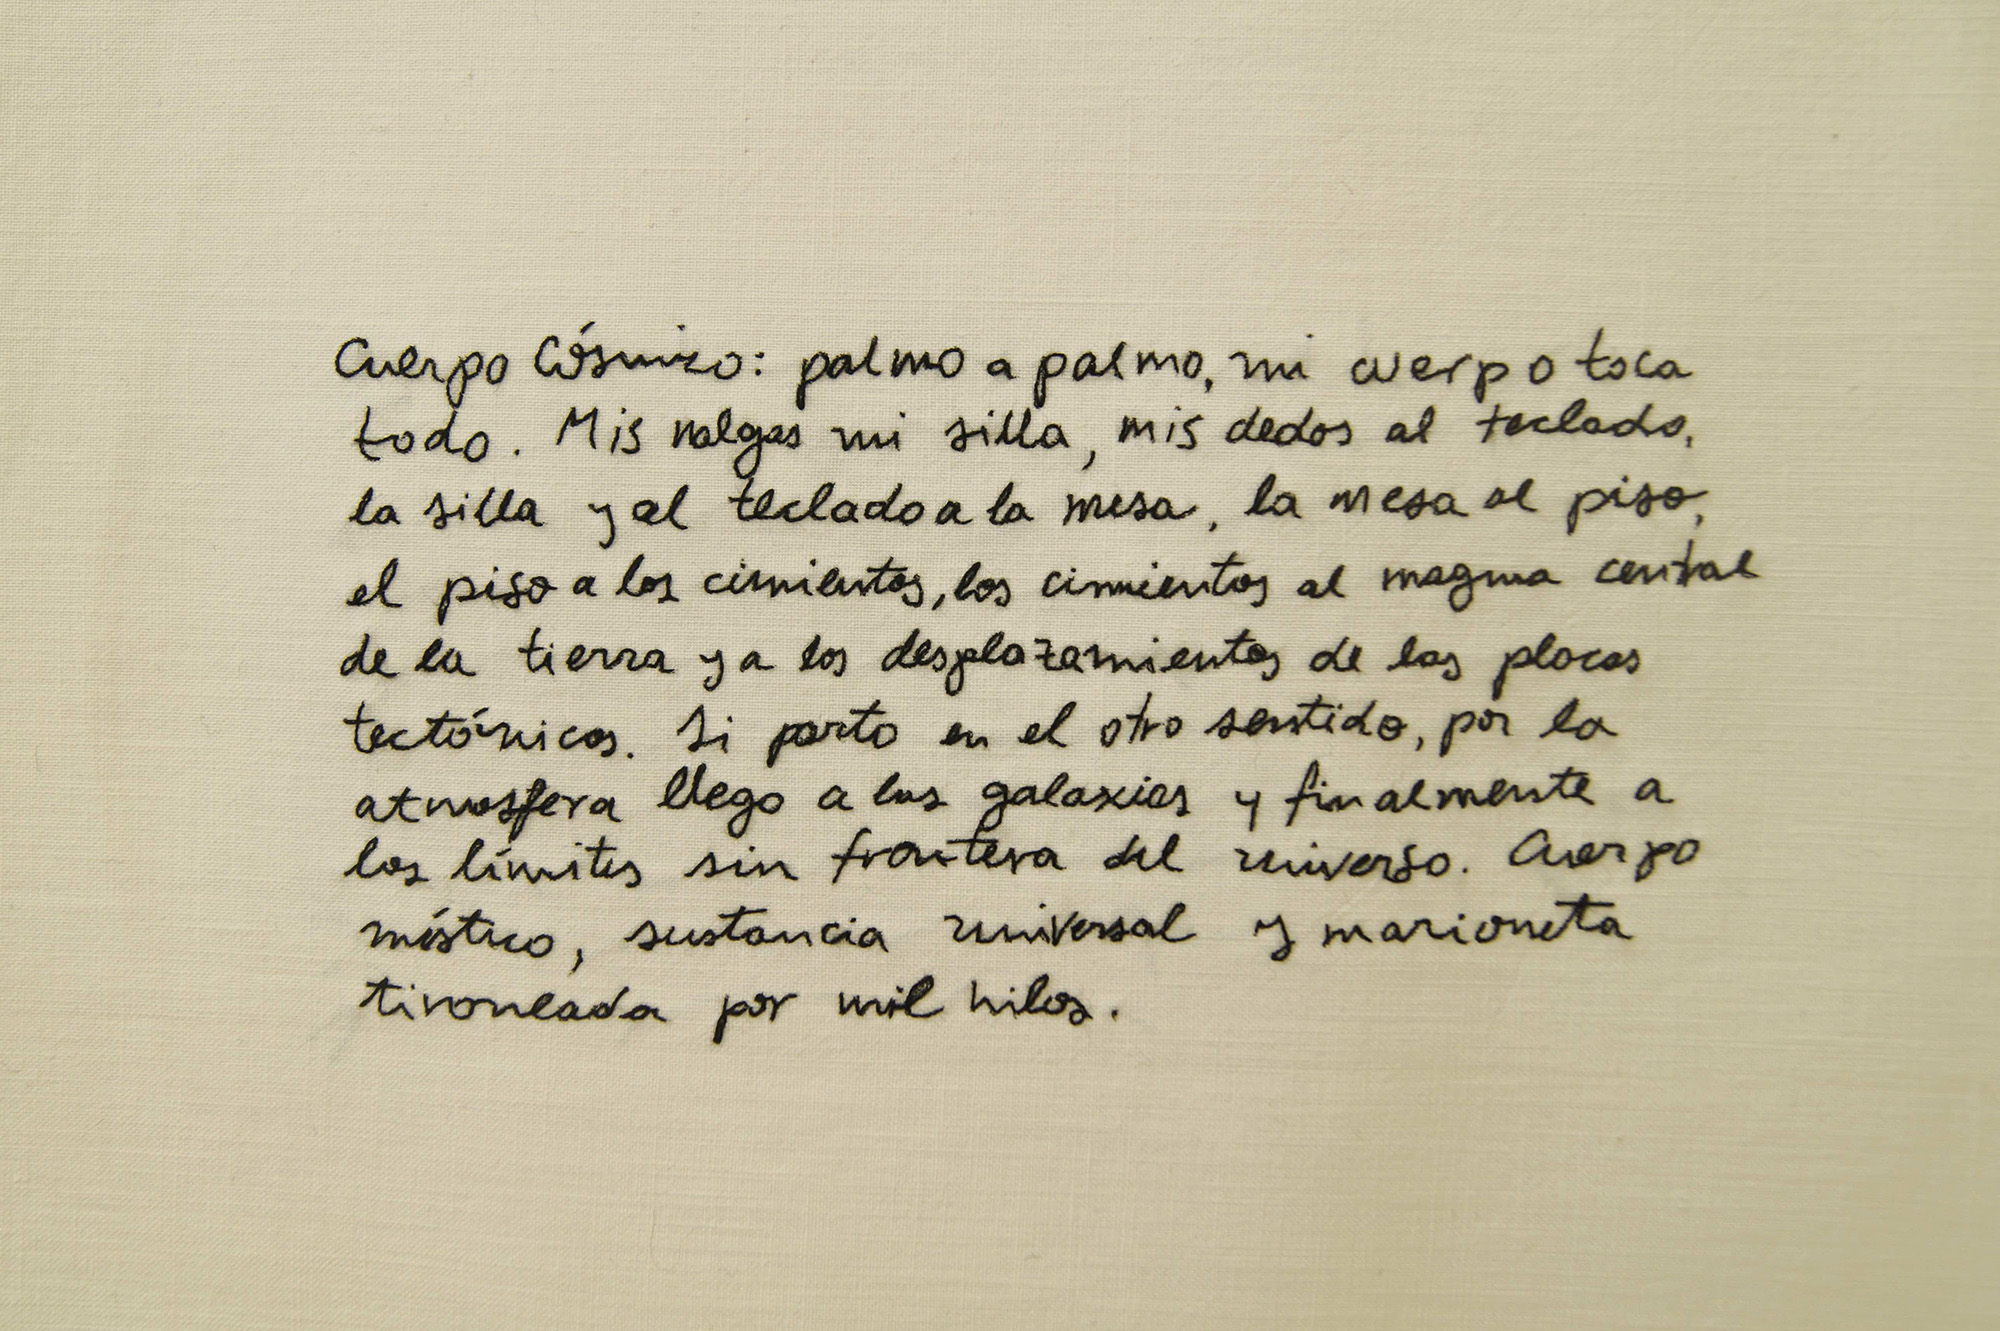 Cuerpo Cósmico: palmo a palmo, mi cuerpo toca
todo. Mis nalgas mi silla, mis dedos al teclado,
la silla y el teclado a la mesa, la mesa al piso,
el piso a los cimientos, los cimientos al magma central
de la tierra y a los desplazamientos de las placas
tectónicas. Si parto en el otro sentido, por la
atmosfera llego a las galaxias y finalmente a
los límites sin frontera del universo. Cuerpo
místico, sustancia universal y marioneta
tironeada por mil hilos.